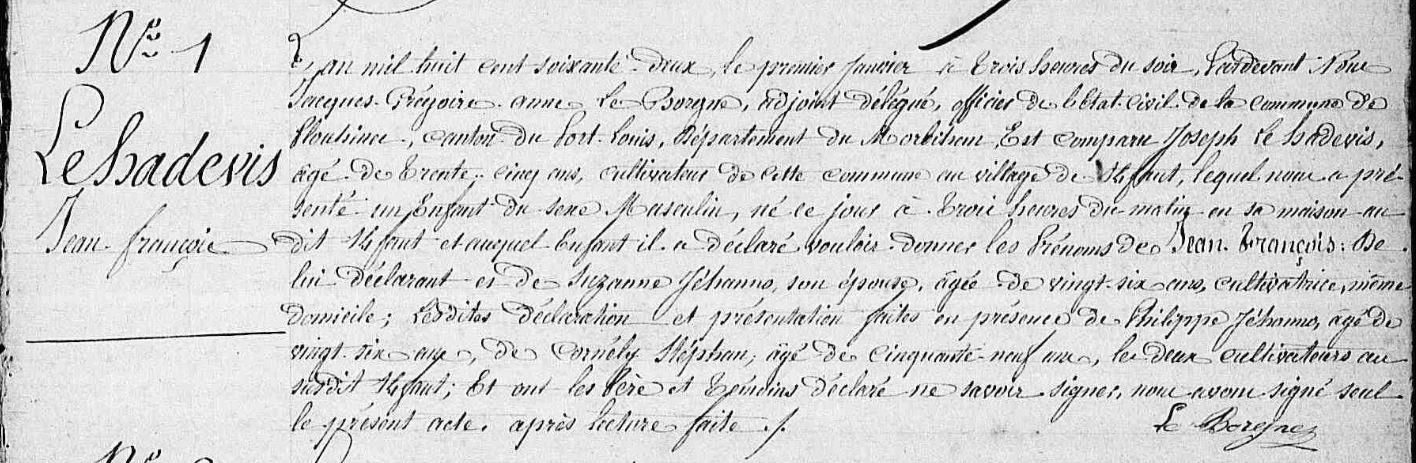 N.º 1
Le hadevis
Jean françois
L'an mil huit cent soixante-deux, le premier Janvier à trois heures du soir, Pardevant Nous
Jacques-Grégoire-anne Le Borgne, adjoint délégué, officier de l'Etat-civil de la commune de
Plouhinec, canton du Port-Louis, Département du Morbihan, Est comparu Joseph Le hadevis,
âgé de trente-cinq ans, cultivateur de cette commune au village de, lequel nous a pré-
senté un Enfant du sexe Masculin, né ce jour à trois heures du matin en sa maison au
dit et auquel Enfant il a déclaré vouloir donner les Prénoms de Jean-François. De
lui déclarant et de Suzanne Jéhanno, son épouse, âgée de vingt-six ans, cultivatrice, même
domicile; Lesdites déclaration et présentation faites en présence de Philippe Jéhanno, agé de
vingt-six ans, de Cornély Stéphan, âgé de cinquante-neuf ans, les deux cultivateurs au
susdit; Et ont les Père et Témoins déclaré ne savoir signer, nous avons signé seul
le présent acte, après lecture faite ./.
Le Borgne